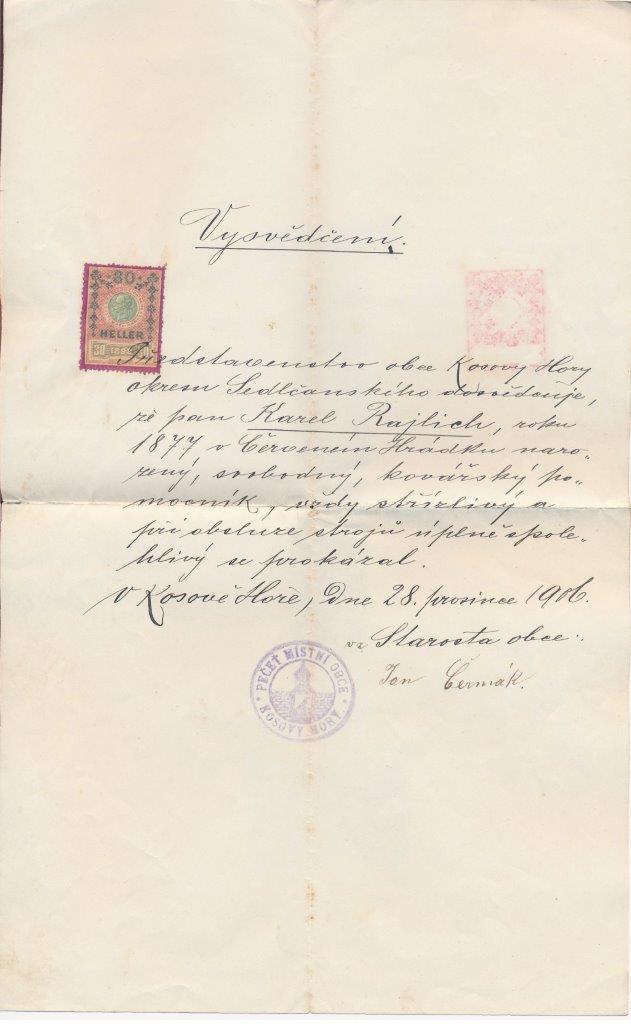 Vysvědčení.
30
HELLER
30 1898
Představenstvo obce Kosovy Hory
okresu Sedlčanského dosvědčuje,
že pan Karel Rajlich, roku
1877 v Červeném Hrádku naro-
zený, svobodný, kovářský po-
mocník, vždy střízlivý a
při obsluze strojů úplně spole-
hlivý se prokázal.
V Kosově Hoře, dne 28. prosince 1906.
vz Starosta obce:
Jan Čermák.
PEČEŤ MÍSTNÍ OBCE
KOSOVY HORY